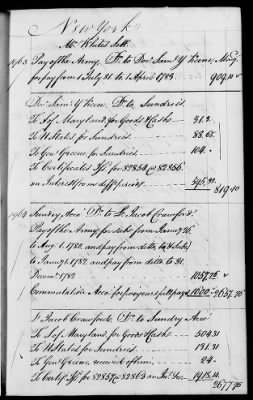 New York
Mr. White's sett.
1963 Pay of the Army, Dr. to Doc. Saml. Y. Keene, Mary.
for pay from 1 July 81 to 1 April 1783. 909.10
Doc. Saml. Y. Keene, Dr. to Sundries
To Jos. Maryland for Goods & Cash 31.3
To U States for Sundries 88.65
To Genl. Greene for Sundries 104.
To Certificates Iss. for 82854 @ 82856
on Interest from diff. periods 595.
819.10
1964 Sundry Acco. Dr. to Lt. Jacob Crawford.
Pay of the Army for subs. from Jany.
to Aug. 1. 1780, and pay from
to Jany. 1782 and pay from ditto to 31.
Decem. 1782 1037.75
Commutation Acco. for five years full pay 1600
2637.75
Lt. Jacob Crawford Dr. to Sundry Acco.
To Jos. Maryland, for Goods & Cash 504.31
To U States for Sundries 131.31
To Genl. Greene, 24
To Certif. Iss. for 82857 @ 82863 on Int. 
2677.75